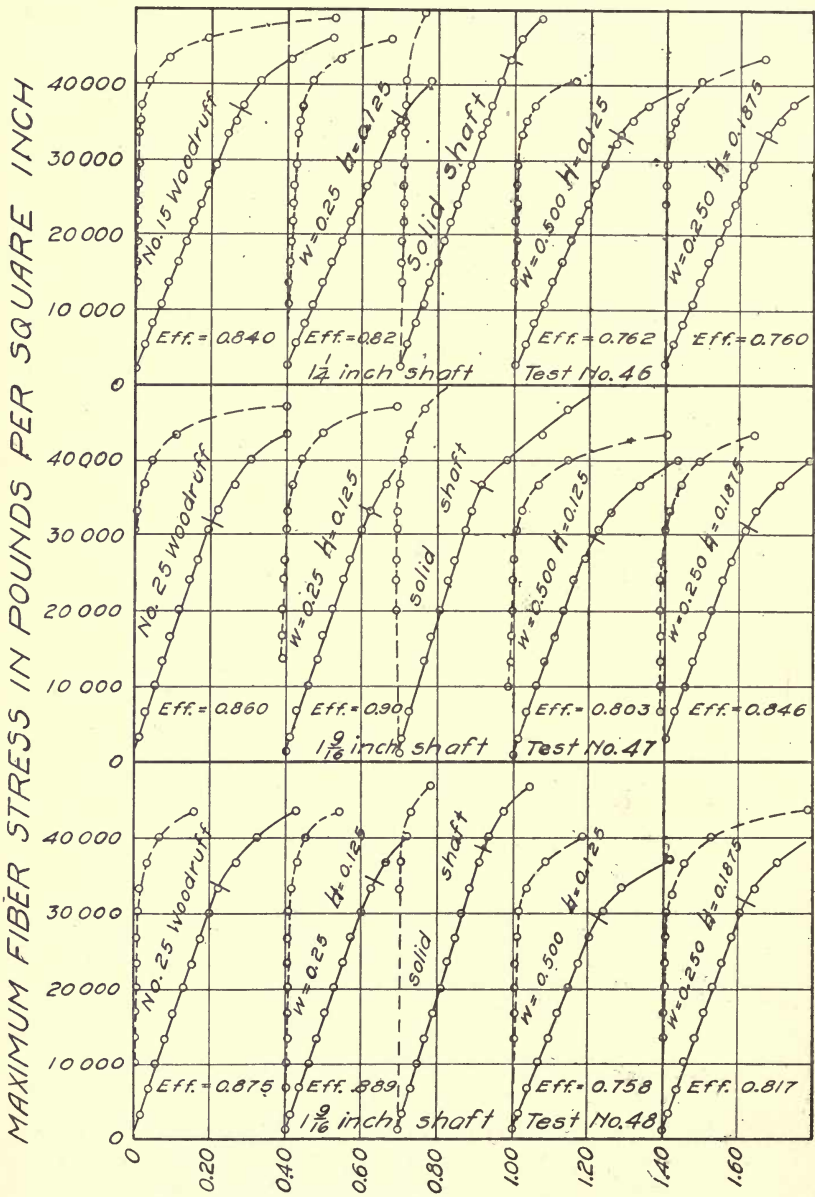 MAXIMUM FIBER STRESS IN POUNDS PER SQUARE INCH
40000
30000
20000
10000
0
No. 15 Woodruff
W=0.25 H=0.125
Solid shaft
W=0.500 H=0.125
W=0.250 H=0.1875
Eff.=0.840
Eff.=0.82
Eff.=0.762
Eff.=0.760
1 1/4 inch shaft
Test No. 46
40000
30000
20000
10000
0
No. 25 Woodruff
W=0.25 H=0.125
solid shaft
W=0.500 H=0.125
W=0.250 H=0.1875
Eff.=0.860
Eff.=0.90
Eff.=0.803
Eff.=0.846
1 9/16 inch shaft
Test No. 47
40000
30000
20000
10000
0
No. 25 Woodruff
W=0.25 H=0.125
solid shaft
W=0.500 H=0.125
W=0.250 H=0.1875
Eff.=0.875
Eff. .889
Eff.=0.758
Eff. 0.817
1 9/16 inch shaft
Test No. 48
0
0.20
0.40
0.60
0.80
1.00
1.20
1.40
1.60